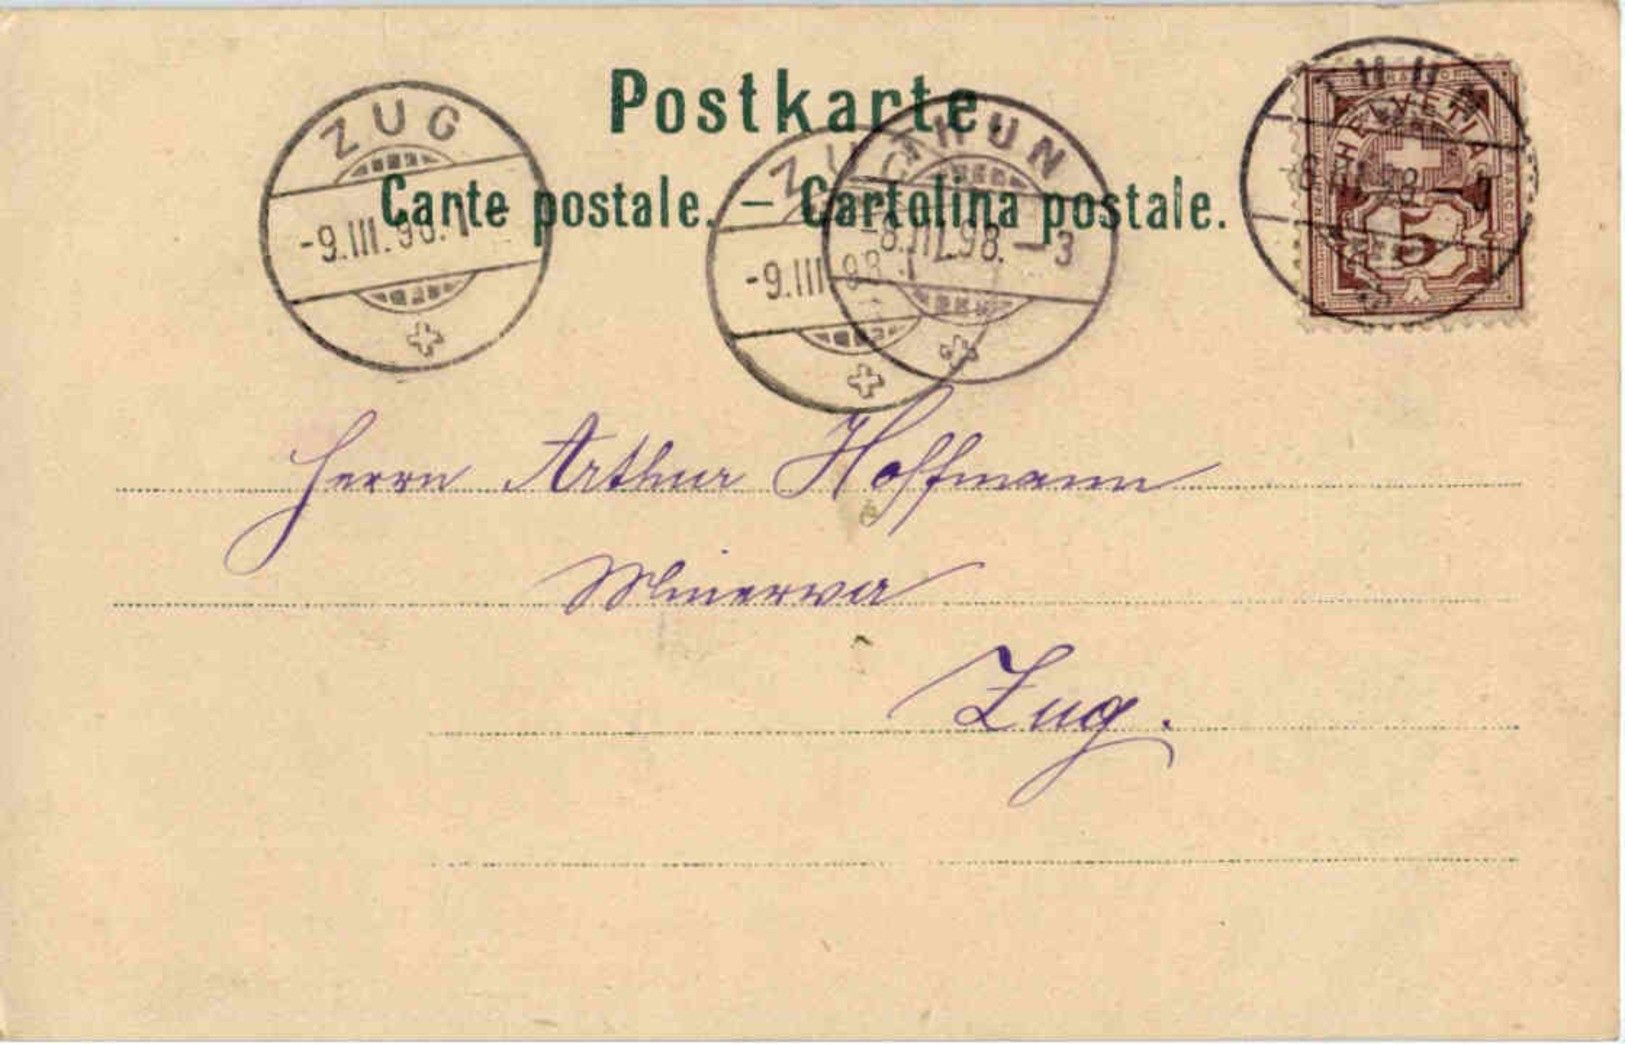 Postkarte.
Carte postale. – Cartolina postale.
ZUG
-9.III.98.
ZUG
-9.III.98.
THUN
-8.III.98.-3
THUN
HELVETIA
FRANCO
5
Herrn Arthur Hoffmann
Minerva
Zug.